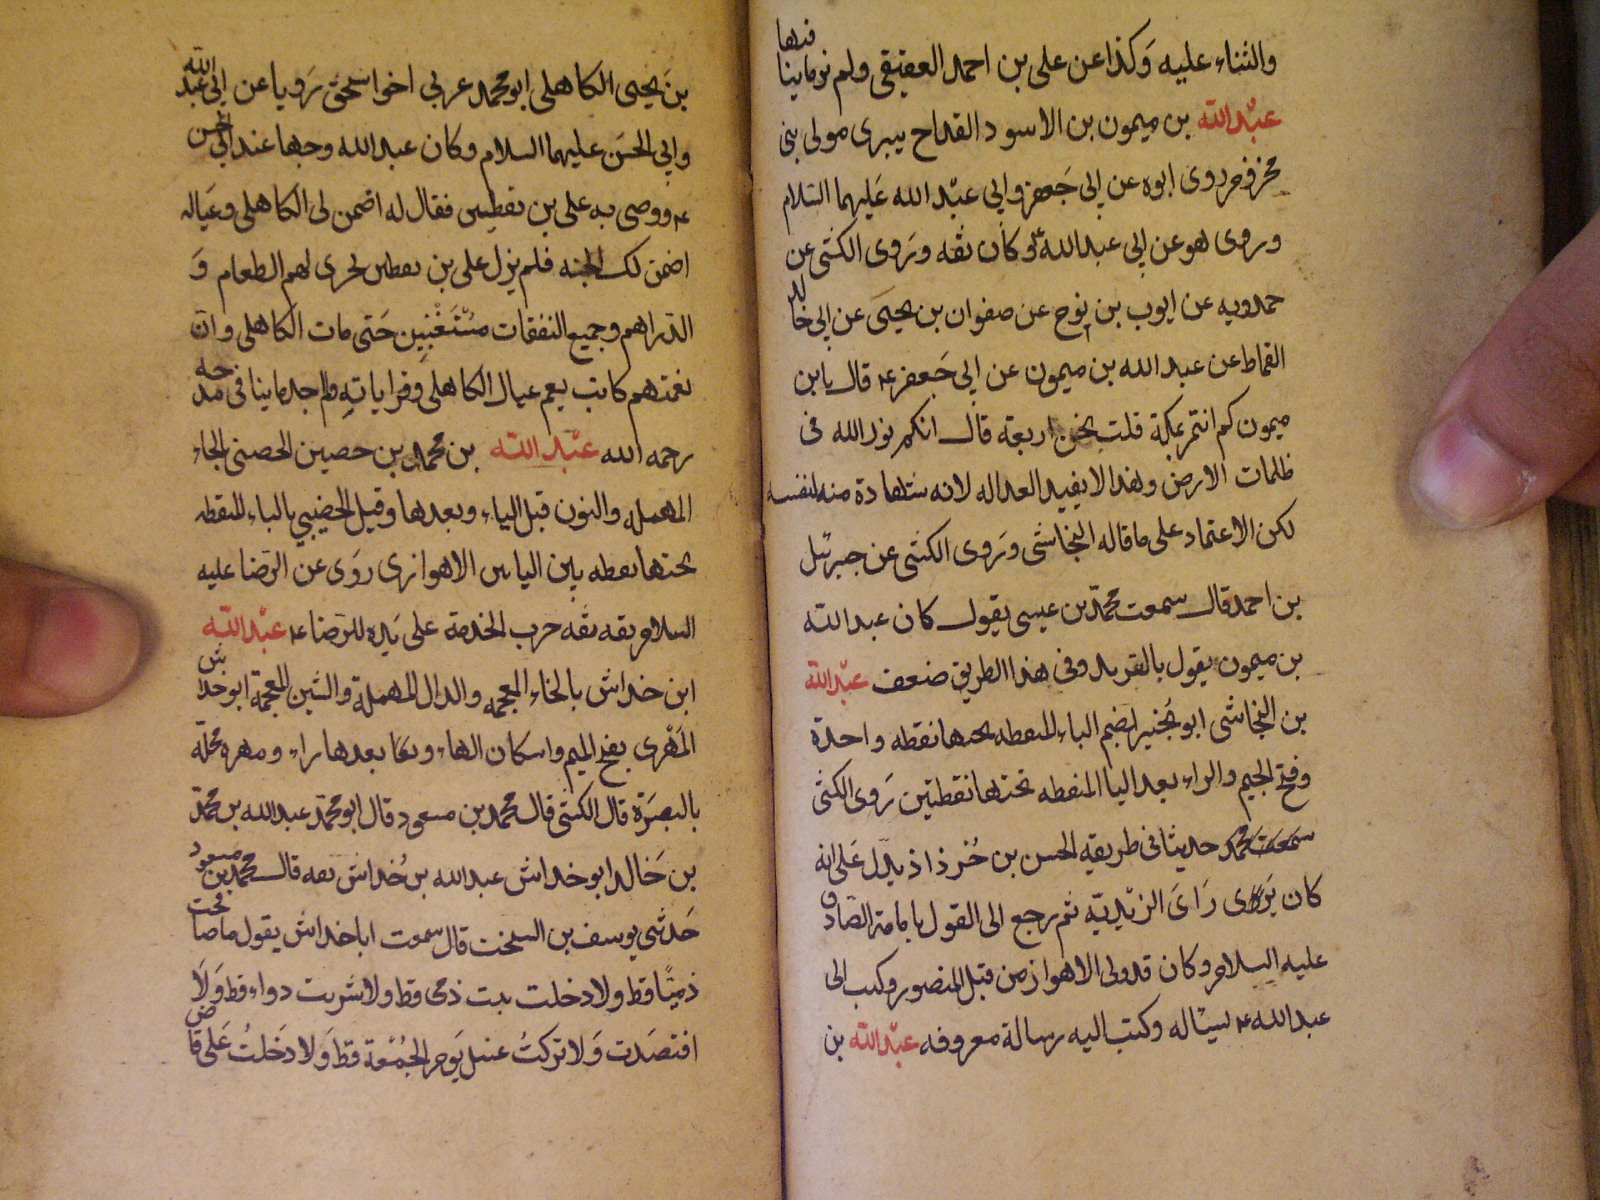 والثناء عليه وكذا عن على بن احمد العقيقى ولم نر ما ينافيها
عبد الله بن ميمون بن الاسود القداح يبرى مولى بنى
مخزوم روى ابوه عن ابى جعفر وابى عبد الله عليهما السلام
وروى هو عن ابى عبد الله ع وكان ثقه وروى الكشى عن
حمدويه عن ايوب بن نوح عن صفوان بن يحيى عن ابى خالد
القماط عن عبد الله بن ميمون عن ابى جعفر ع قال يا بن
ميمون كم انتم بمكة قلت نحن اربعة قال انكم نور الله فى
ظلمات الارض وهذا لا يفيد العداله لانه شهادة منه لنفسه
لكن الاعتماد على ما قاله النجاشى وروى الكشى عن جبرئيل
بن احمد قال سمعت محمد بن عيسى يقول كان عبد الله
بن ميمون يقول بالتزيد وفى هذا الطريق ضعف عبد الله
بن النجاشى ابو بجير بضم الباء المنقطه تحتها نقطه واحدة
وفتح الجيم والراء بعد اليا المنقطه تحتها نقطتين روى الكشى
حديثا فى طريقه الحسن بن خرزاذ يدل على انه
كان يرى راى الزيدية ثم رجع الى القول بامامة الصادق
عليه السلام وكان قد ولى الاهواز من قبل المنصور وكتب الى
عبد الله ع يسئاله وكتب اليه رسالة معروفه عبد الله بن
بن يحيى الكاهلى ابو محمد عربى اخو اسحق رويا عن ابى عبد الله
وابى الحسن عليهما السلام وكان عبد الله وجها عند ابى الحسن
ع ووصى به على بن يقطين فقال له اضمن لى الكاهلى وعياله
اضمن لك الجنه فلم يزل على بن يقطين يجرى لهم الطعام و
الدراهم وجميع النفقات مستغنين حتى مات الكاهلى وان
نعمتهم كانت يعم عيال الكاهلى وقراباته ولم اجد ما ينافى مدحه
رحمه الله عبد الله بن محمد بن حصين الحصنى الحاء
المهمله والنون قبل الياء وبعدها وقيل الحضيبى بالباء المنقطه
تحتها نقطه بين اليائين الاهوازى روى عن الرضا عليه
السلام ثقه ثقه جرت الخدمة على يده للرضا ع عبد الله
ابن خداش بالخاء المعجمه والدال المهملة والشين المعجمة ابو خداش
المهرى بفتح الميم واسكان الهاء وبعدها راء ومهره محلة
بالبصرة قال الكشى قال محمد بن مسعود قال ابو محمد عبد الله بن محمد
بن خالد ابو خداش عبد الله بن خداش ثقه قال محمد بن مسعود
حدثنى يوسف بن السخت قال سمعت ابا خداش يقول ما صافحت
ذميا قط ولا دخلت بيت ذمى قط ولا شربت دواء قط ولا
افتصدت ولا تركت غسل يوم الجمعة قط ولا دخلت على قاض